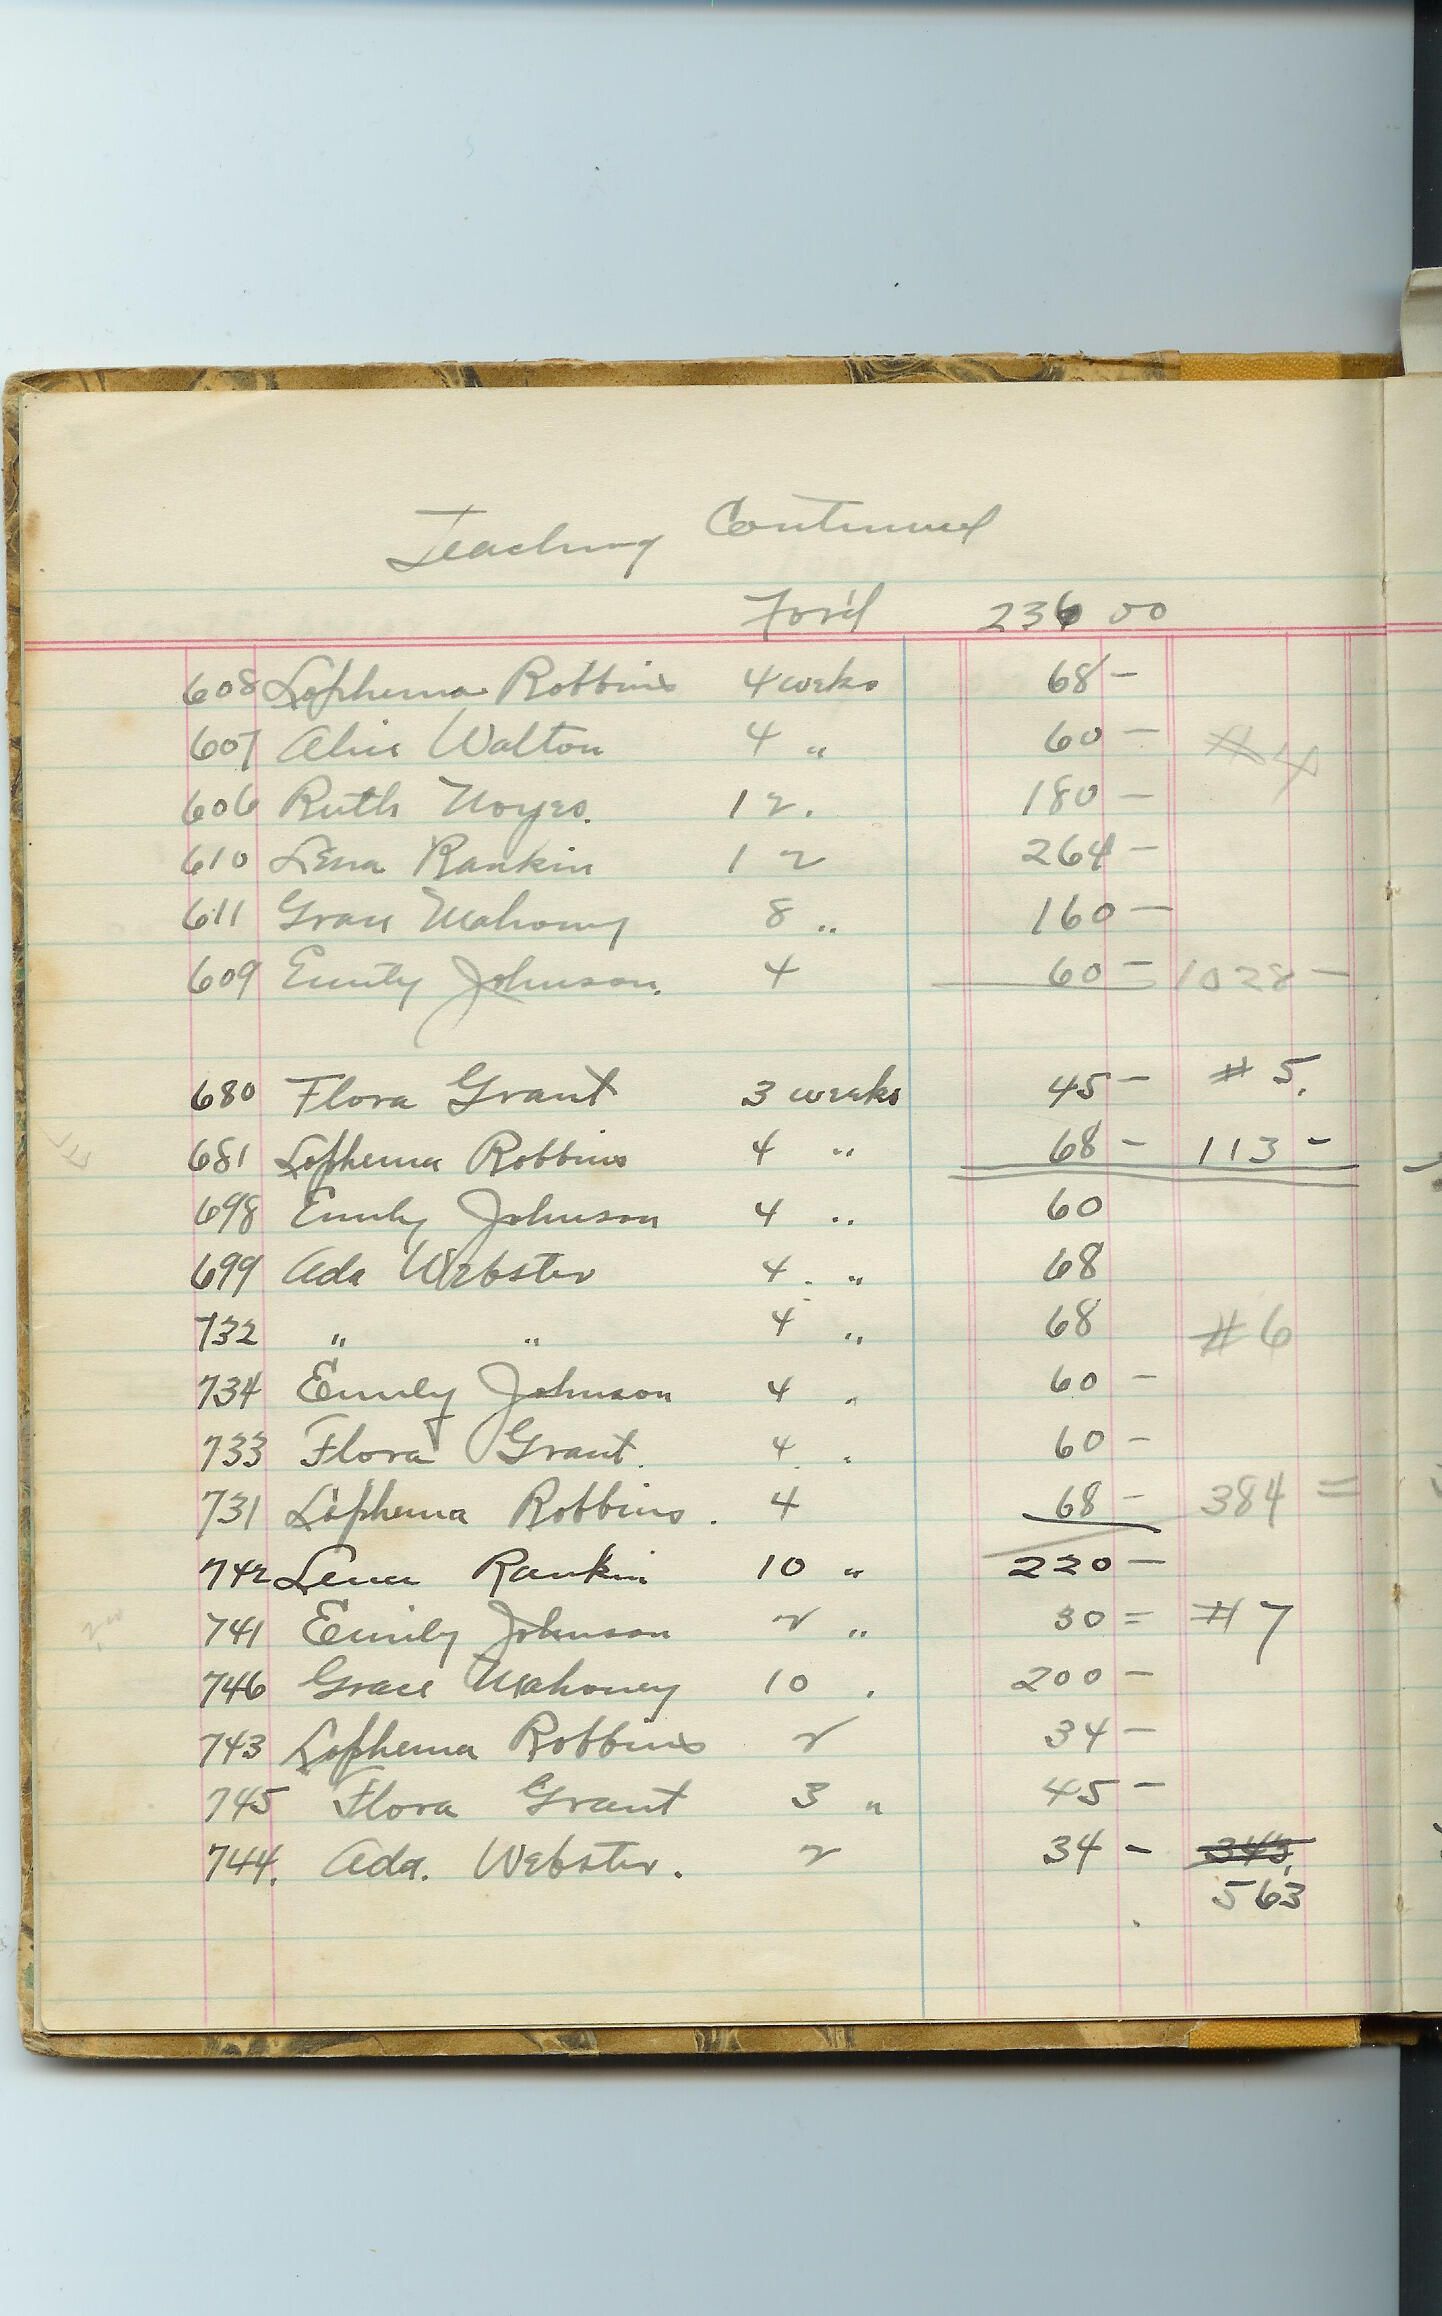 Teaching Continued
For'd 236 00
608 Lophema Robbins 4 weks 68 -
607 Alice Walton 4 " 60 - #4
606 Ruth Noyes. 12. 180 -
610 Lena Rankin 12 264 -
611 Grace Mahoney 8 " 160 -
609 Emily Johnson. 4 60 - 1028 -
680 Flora Grant 3 weeks 45 - # 5.
681 Lophema Robbins 4 " 68 - 113 -
698 Emily Johnson 4 " 60
699 Ada Webster 4 . " 68
732 " " 4 " 68 #6
734 Emily Johnson 4 " 60 -
733 Flora Grant. 4 . " 60 -
731 Lophema Robbins . 4 68 - 384 =
742 Lena Rankin 10 " 220 -
741 Emily Johnson 2 " 30 = #7
746 Grace Mahoney 10 . 200 -
743 Lophema Robbins 2 34 -
745 Flora Grant 3 " 45 -
744. Ada. Webster. 2 34 - 343.
563